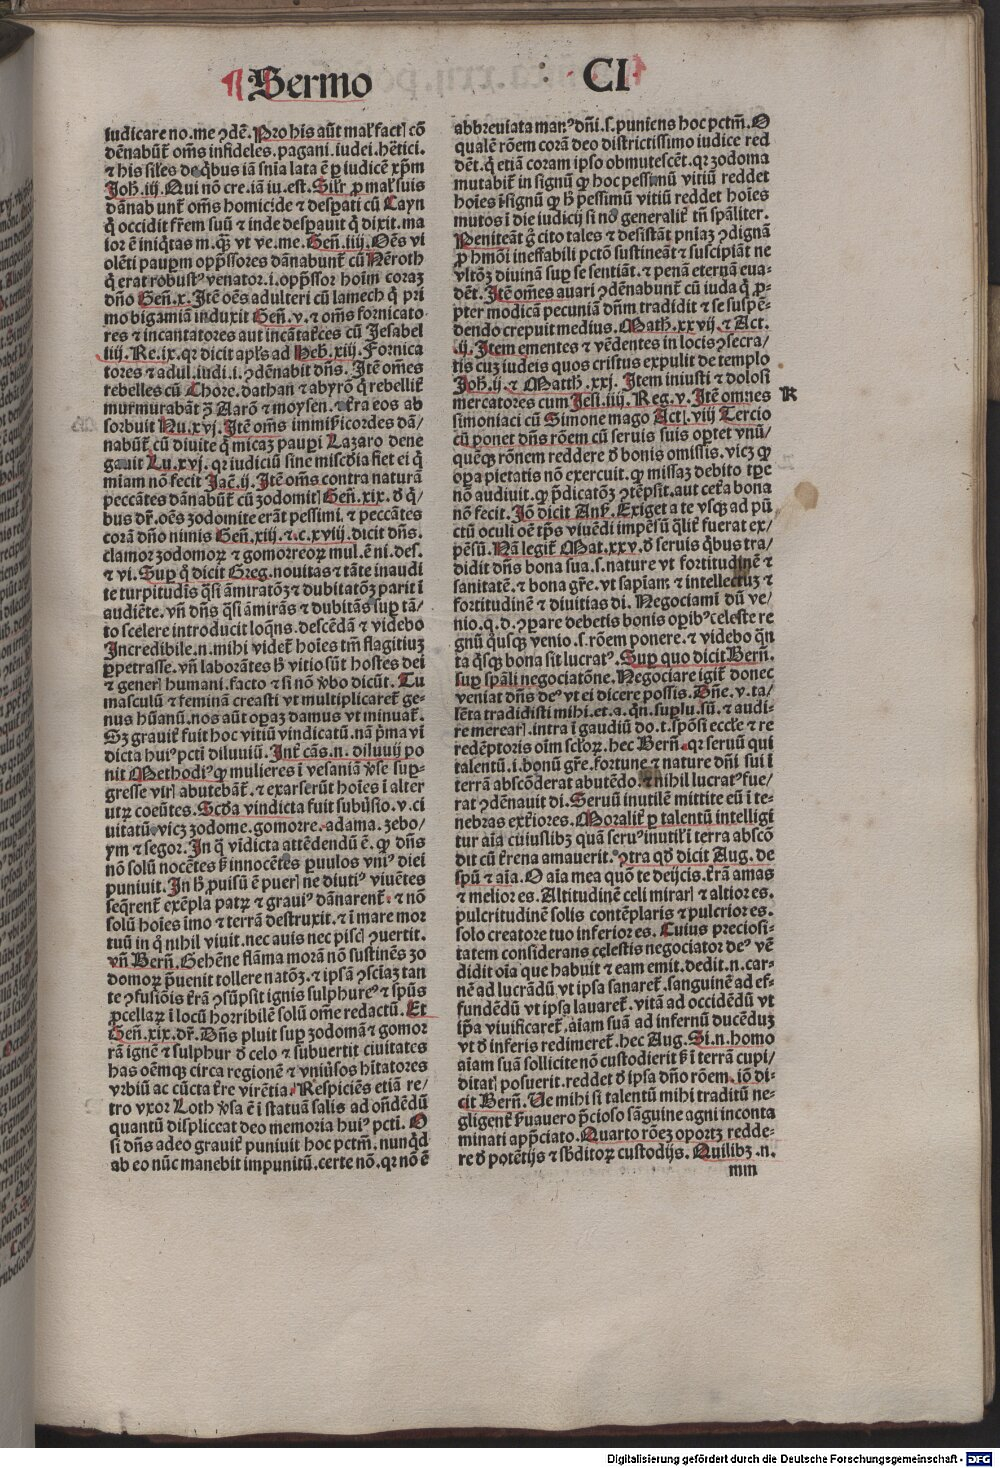 ¶ Sermo CI
iudicare no. me ꝯdē. Pro his aūt malꝭ factꝭ cō
dēnabūt̄ om̄s infideles. pagani. iudei. he̅tici.
⁊ his siles de q̇bus iā sn̄ia lata ē ꝑ iudicē xp̄m
Joh̄. iij. Qui nō cre. iā iu. est. Silr̄ ꝓ malꝭ suis
dānabunt̄ om̄s homicide ⁊ desꝑati cū Cayn
q̇ occidit fr̄em suū ⁊ inde desꝑauit q̇ dixit. ma
ior ē iniq̇tas m. qꝫ vt ve. me. Gen̄. iiij. Oēs vi
olēti pauꝑm opp̄ssores dānabunt̄ cū Nēroth
q̇ erat robustꝰ venator. i. opp̄ssor hoīm coraꝫ
dn̄o Gen̄. x. Jtē oēs adulteri cū lamech q̇ pri
mo bigamiā induxit Gen̄. v. ⁊ om̄s fornicato
res ⁊ incantatores aut incātat̄ces cū Jesabel
iiij. Re. ix. qꝛ dicit apl̄s ad Heb̄. xiij. Fornica
tores ⁊ adul. iudi. i. ꝯdēnabit dn̄s. Jtē om̄es
rebelles cū Chore. dathan ⁊ abyrō q̇ rebellit̄
murmurabāt ꝯ̄ Aarō ⁊ moysen. t̄ra eos ab
sorbuit Nu. xvj. Jtē om̄s immīꝭicordes dā/
nabūt̄ cū diuite q̇ micaꝫ pauꝑi Lazaro dene
gauit Lu. xvj. qꝛ iudiciū sine misc̄dia fiet ei q̇
miam nō fecit Jac̄. ij. Jtē om̄s contra naturā
peccātes dānabūt̄ cū ꝫodomitꝭ Gen̄. xix. ð q̇/
bus dr̄. oēs ꝫodomite erāt pessimi. ⁊ peccātes
corā dn̄o nimis Gen̄. xiij. ⁊. c. xviij. dicit dn̄s.
clamor ꝫodomoꝝ ⁊ gomorreoꝝ mul. ē ni. des.
⁊ vi. Suꝑ q̇ dicit Greg. nouitas ⁊ tāte inaudi
te turpitudīs q̄si āmiratoꝫ ⁊ dubitatoꝫ parit ī
audiēte. vn̄ dn̄s q̄si āmirās ⁊ dubitās suꝑ tā/
to scelere introducit loq̄ns. descēdā ⁊ videbo
Jncredibile. n. mihi videt̄ hoīes tm̄ flagitiuꝫ
ꝑpetrasse. vn̄ laborātes h̄ vitio sūt hostes dei
⁊ generꝭ humani. facto ⁊ si nō ꝟbo dicūt. Tu
masculū ⁊ feminā creasti vt multiplicaret̄ ge-
nus hūanū. nos aūt oꝑaꝫ damus vt minuat̄.
Sꝫ grauit̄ fuit hoc vitiū vindicatū. nā p̄ma vī
dicta huiꝰ pcti diluuiū. Jnt̄ cās. n. diluuij po
nit Methodiꝰ ꝙ mulieres ī vesaniā ꝟse suꝑ-
gresse virꝭ abutebāt̄. ⁊ exarserūt hoīes ī alter
utrꝫ coeūtes. Scða vindicta fuit subūsio. v. ci
uitatū vicꝫ ꝫodome. gomorre. adama. ꝫebo/
ym ⁊ segor. Jn q̇ vīdicta attēdendū ē. ꝙ dn̄s
nō solū nocētes ꝫ innocētes ꝑuulos vniꝰ diei
puniuit. Jn h̄ ꝓuisū ē puerꝭ ne diutiꝰ viuētes
seq̄rent̄ exēpla patꝝ ⁊ grauiꝰ dānarent̄. ⁊ nō
solū hoīes īmo ⁊ terrā destruxit. ⁊ ī mare mor
tuū in q̇ nihil viuit. nec auis nec piscꝭ ꝯuertit.
vn̄ Bern̄. Gehēne flāma morā nō sustinēs ꝫo
domoꝝ p̄uenit tollere natōꝫ. ⁊ ipsā ꝯsciaꝫ tan
te ꝯfusiōis t̄rā ꝯsūpsit ignis sulphureꝰ ⁊ spūs
ꝓcellaꝝ ī locū horribilē solū om̄e redactū. Et
Gen̄. xix. dr̄. Dn̄s pluit suꝑ ꝫodomā ⁊ gomor
rā ignē ⁊ sulphur ð celo ⁊ subuertit ciuitates
has oēmqꝫ circa regionē ⁊ vniūsos hītatores
vrbiū ac cūcta t̄re virētia. Respiciēs etiā re/
tro vxor Loth ꝟsa ē ī statuā salis ad on̄dēdū
quantū displiceat deo memoria huiꝰ pcti. O
si dn̄s adeo grauit̄ puniuit hoc pctm̄. nunq̇d
ab eo nūc manebit impunitū. certe nō. qꝛ nō ē
abbreuiata manꝰ dn̄i. s. puniens hoc pctm̄. O
qualē rōem corā deo districtissimo iudice red
dēt. q̇ etiā coram ipso obmutescēt. qꝛ ꝫodoma
mutabit̄ in signū ꝙ hoc pessimū vitiū reddet
hoīes īsignū ꝙ h̄ pessimū vitiū reddet hoīes
mutos ī die iudicij si nō generalit̄ tn̄ sp̄aliter.
Peniteāt g̊ cito tales ⁊ desistāt pniaꝫ ꝯdignā
ꝓ hmōi ineffabili pctō sustineāt ⁊ suscipiāt ne
vltōꝫ diuinā suꝑ se sentiāt. ⁊ penā eternā eua-
dēt. Jtē om̄es auari ꝯdēnabunt̄ cū iuda q̇ ꝓ-
pter modicā pecuniā dn̄m tradidit ⁊ se suspē-
dendo crepuit medius. Math̄. xxvij. ⁊ Act.
.ij. Jtem ementes ⁊ vēdentes in locis ꝯsecra/
tis cuꝫ iudeis quos cristus expulit de templo
Joh̄. ij. ⁊ Matth̄. xxj. Jtem iniusti ⁊ dolosi
mercatores cum Jesi. iiij. Reg. v. Jtē omnes K
simoniaci cū Simone mago Actꝭ. viij Tercio
cū ponet dn̄s rōem cū seruis suis oꝑtet vnū/
quēqꝫ rōnem reddere ð bonis omissis. vicꝫ ꝙ
oꝑa pietatis nō exercuit. ꝙ missaꝫ debito tꝑe
nō audiuit. ꝙ p̄dicatōꝫ ꝯtēpsit. aut cet̄a bona
nō fecit. Jō dicit Anꝭ. Exiget a te vsqꝫ ad pū
ctū oculi oē tp̄s viuēdi impēsū q̄lit̄ fuerat ex/
pēsū. Nā legit̄ Mat. xxv. ð seruis q̇bus tra/
didit dn̄s bona sua. s. nature vt fortitudinē ⁊
sanitatē. ⁊ bona gr̄e. vt sapiam ⁊ intellectuꝫ ⁊
fortitudinē ⁊ diuitias di. Negociamī dū ve/
nio. q. d. ꝯpare debetis bonis oꝑibꝰ celeste re
gnū q̇usqꝫ venio. s. rōem ponere. ⁊ videbo q̄n
ta q̇sqꝫ bona sit lucratꝰ. Suꝑ quo dicit Bern̄.
suꝑ sp̄ali negociatōne. Negociare igit̄ donec
veniat dn̄s deꝰ vt ei dicere possis. Dn̄e. v. ta/
lēta tradidisti mihi. et. a. qn̄. suꝑlu. sū. ⁊ audi-
re merearꝭ. intra ī gaudiū do. t. spōsi eccl̄e ⁊ re
redēptoris oīm sctoꝝ. hec Bern̄. qꝛ seruū qui
talentū. i. bonū gr̄e. fortune ⁊ nature dn̄i sui ī
terrā abscōderat abutēdo. ⁊ nihil lucratꝰ fue/
rat ꝯdēnauit di. Seruū inutilē mittite eū ī te-
nebras ext̄iores. Moralit̄ ꝑ talentū intelligi
tur aīa cuiuslibꝫ quā seruꝰ inutilꝭ ī terra abscō
dit cū t̄rena amauerit. ꝯtra qð dicit Aug. de
spū ⁊ aīa. O aīa mea quō te deijcis. t̄rā amas
⁊ melior es. Altitudinē celi mirarꝭ ⁊ altior es.
pulcritudinē solis contēplaris ⁊ pulcrior es.
solo creatore tuo inferior es. Cuius preciosi-
tatem considerans cęlestis negociator deꝰ vē
didit oīa que habuit ⁊ eam emit. dedit. n. car-
nē ad lucrādū vt ipsa sanaret̄. sanguinē ad ef-
fundēdū vt ipsa lauaret̄. vitā ad occidēdū vt
ip̄a viuificaret̄. aīam suā ad infernū ducēduꝫ
vt ð inferis redimeret̄. hec Aug. Si. n. homo
aīam suā sollicite nō custodierit ꝫ ī terrā cupi/
ditatꝭ posuerit. reddet ð ipsa dn̄o rōem. iō di-
cit Bern̄. Ve mihi si talentū mihi traditū ne-
gligent̄ ẜuauero p̄cioso sāguine agni inconta
minati app̄ciato. Quarto rōeꝫ oportꝫ redde-
re ð potētijs ⁊ sb̄ditoꝝ custodijs. Quilibꝫ .n.
mm
Digitalisierung gefördert durch die Deutsche Forschungsgemeinschaft - DFG